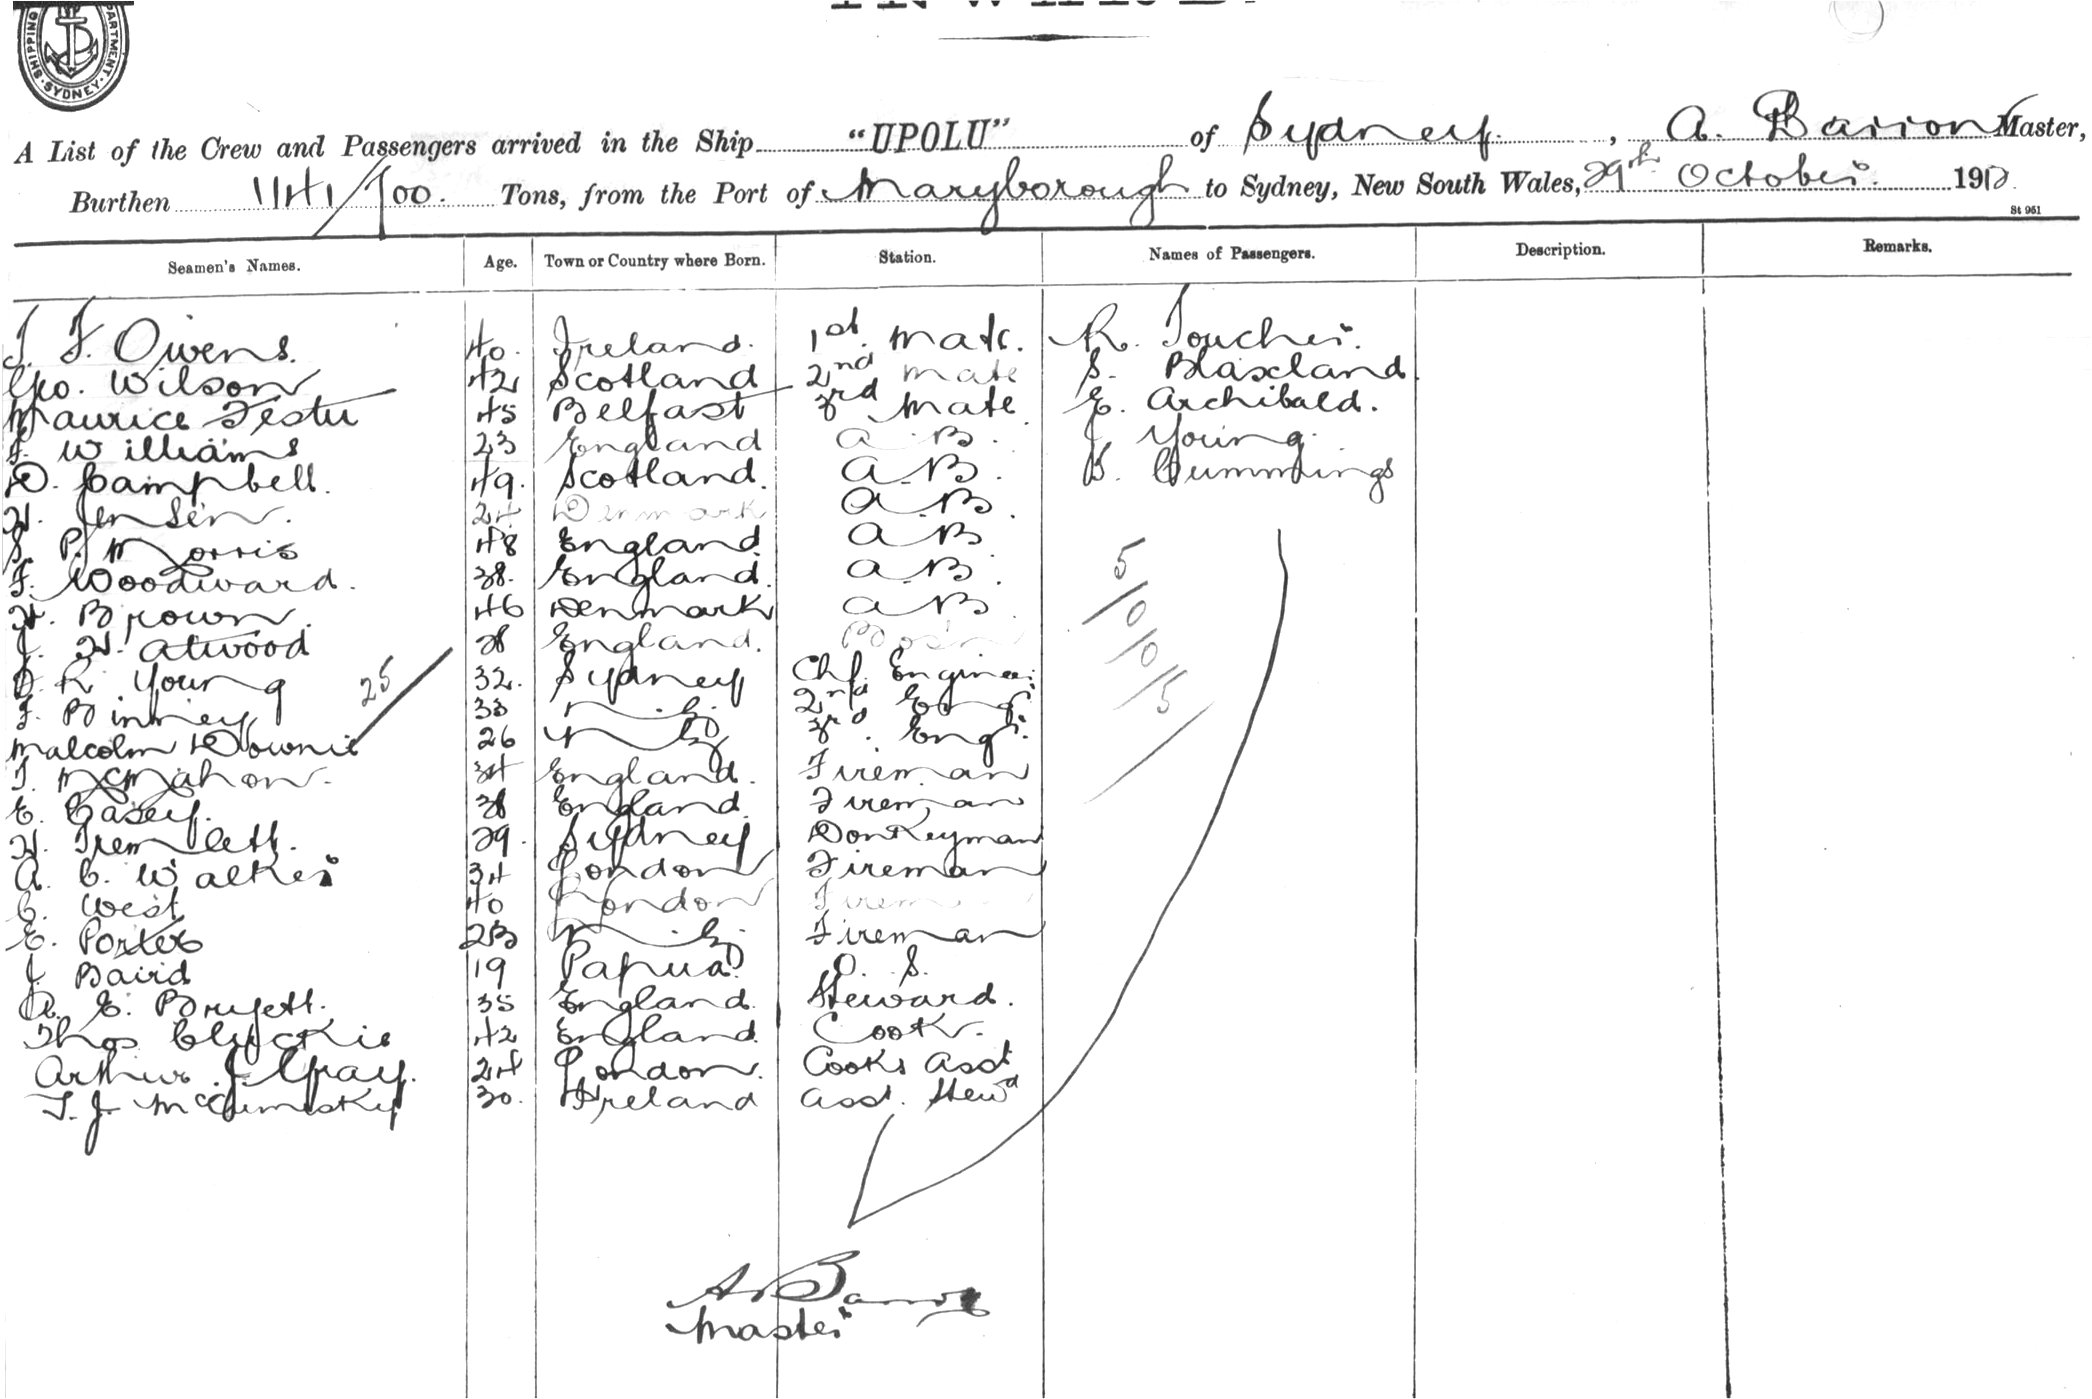 INWARD.
SHIPPING DEPARTMENT SYDNEY
A List of the Crew and Passengers arrived in the Ship "UPOLU" of Sydney, A. Barron Master,
Burthen 1141/700. Tons, from the Port of Maryborough to Sydney, New South Wales, 29th October 191
St 951
Seamen's Names. Age. Town or Country where Born. Station. Names of Passengers. Description. Remarks.
T. F. Owens. 40. Ireland. 1st. Mate. R. Toucher.
Geo. Wilson 42 Scotland 2nd Mate S. Blaxland
Maurice Festu 45 Belfast 3rd Mate E. Archibald.
F. Williams 23 England A.B. J. Young.
D. Campbell. 49. Scotland. A.B. Cummings
H. Jensen. 24 Denmark A.B.
S. P. Morris 48 England A B
F. Woodward. 38. England. A.B.
H. Brown. 46 Denmark A B
J. H. Atwood 28 England. Bos'n
R. Young 32. Sydney Chf. Engineer
F. Binney 33 N. Z. 2nd Eng.
Malcolm Downie 26 N Z 3rd. Engr.
25
T. McMahon. 34 England. Fireman
E. Casey. 38 England. Fireman
H. Tremlett. 29. Sydney Donkeyman
A. C. Walker 34 London Fireman
C. West 40 London Firem
E. Porter 23 N. Z. Fireman
J. Baird 19 Papua. O. S.
A. E. Bryett. 35 England. Steward.
Thos Cluckie 42 England. Cook.
Arthur J Gray. 24 London. Cooks Asst
T. J. McCumisky 30. Ireland Asst. Stewd
5/0/0/5/
A. Barron
Master